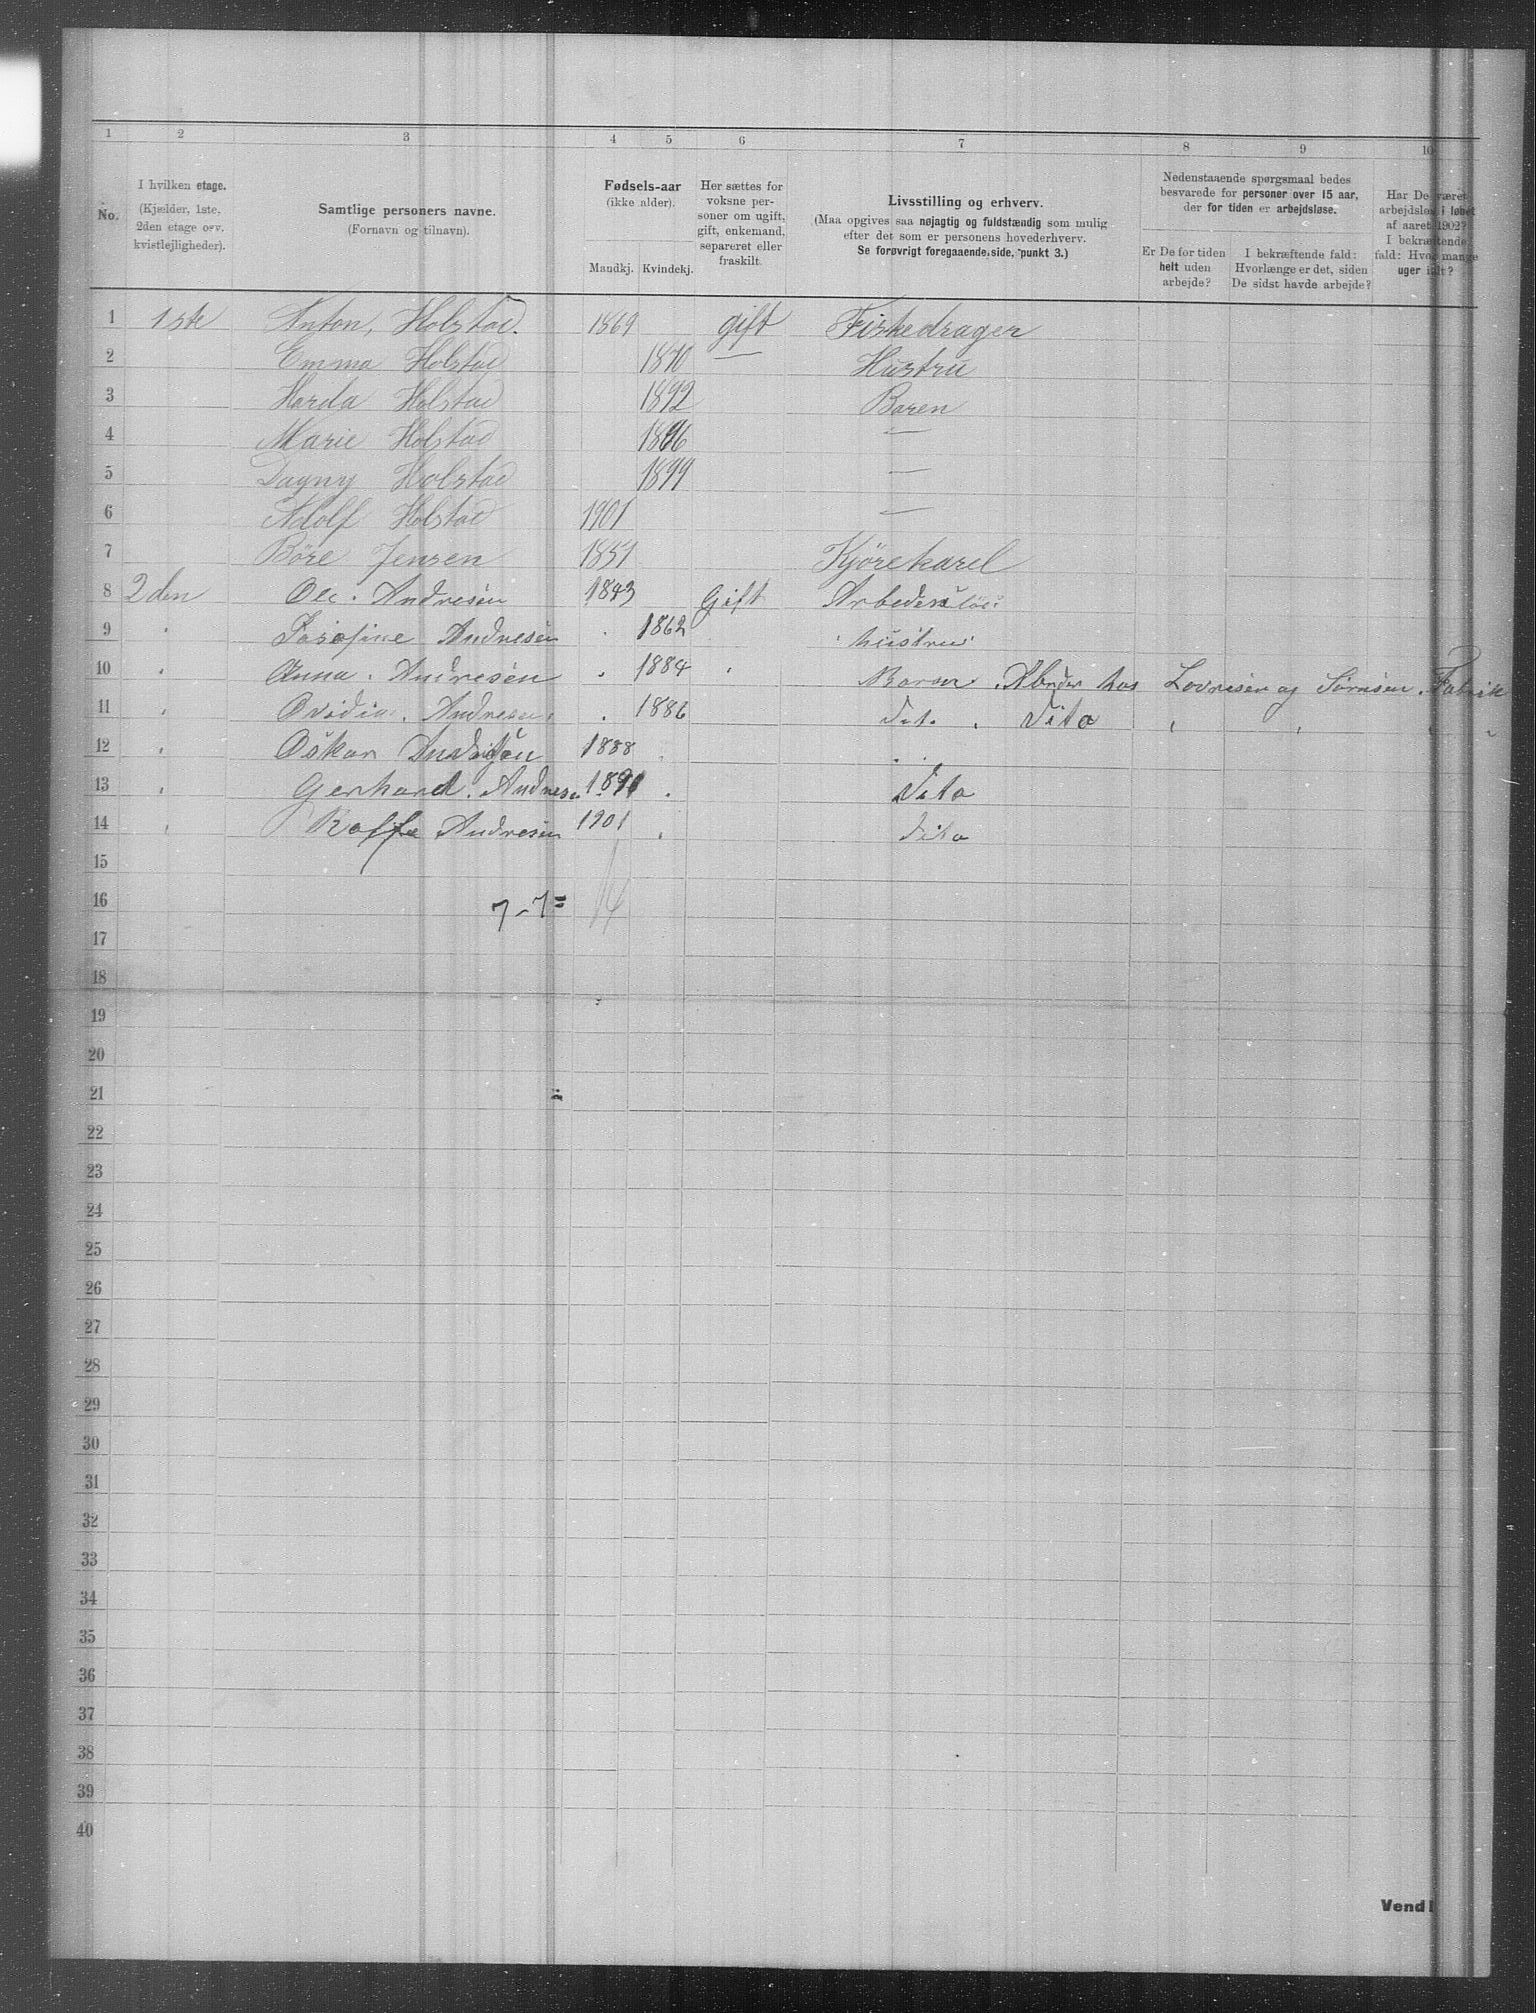 1 2 3 4 5 6 7 8 9 10
No.
I hvilken etage.
(Kjælder, 1ste,
2den etage osv.
kvistlejligheder).
Samtlige personers navne.
(Fornavn og tilnavn).
Fødsels-aar
(ikke alder).
Mandkj. Kvindekj.
Her sættes for
voksne per-
soner om ugift,
gift, enkemand,
separeret eller
fraskilt.
Livsstilling og erhverv.
(Maa opgives saa nøjagtig og fuldstændig som mulig
efter det som er personens hovederhverv.
Se forøvrigt foregaaende side, punkt 3.)
Nedenstaaende spørgsmaal bedes
besvarede for personer over 15 aar,
der for tiden er arbejdsløse.
Er De for tiden
helt uden
arbejde?
I bekræftende fald:
Hvorlænge er det, siden
De sidst havde arbejde?
Har De været
arbejdsløs i løbet
af aaret 1902?
I bekræftende
fald: Hvor mange
uger ialt?
1 1ste Anton, Holstad. 1869 gift Fiskedrager
2 Emma Holstad 1870 — Hustru
3 Harda Holstad 1892 Baren
4 Marie Holstad 1896 —
5 Dagny Holstad 1899 —
6 Adolf Holstad 1901 —
7 Böre Jensen 1851 Kjörekarel
8 2den Ole. Andresen 1843 Gift
9 Josofine Andresen 1862 hustru
10 Anna. Andresen 1884 Baren. Abeder hos Lovresen og Sörnsen. Fabrik
11 Andresen. 1886 Dito
12 Oskar Andresen 1888
13 Gerhard. Andresen 1891 Dito
14 Andresen 1901 dito
15
16 7-7= 14
17
18
19
20
21
22
23
24
25
26
27
28
29
30
31
32
33
34
35
36
37
38
39
40
Vend!